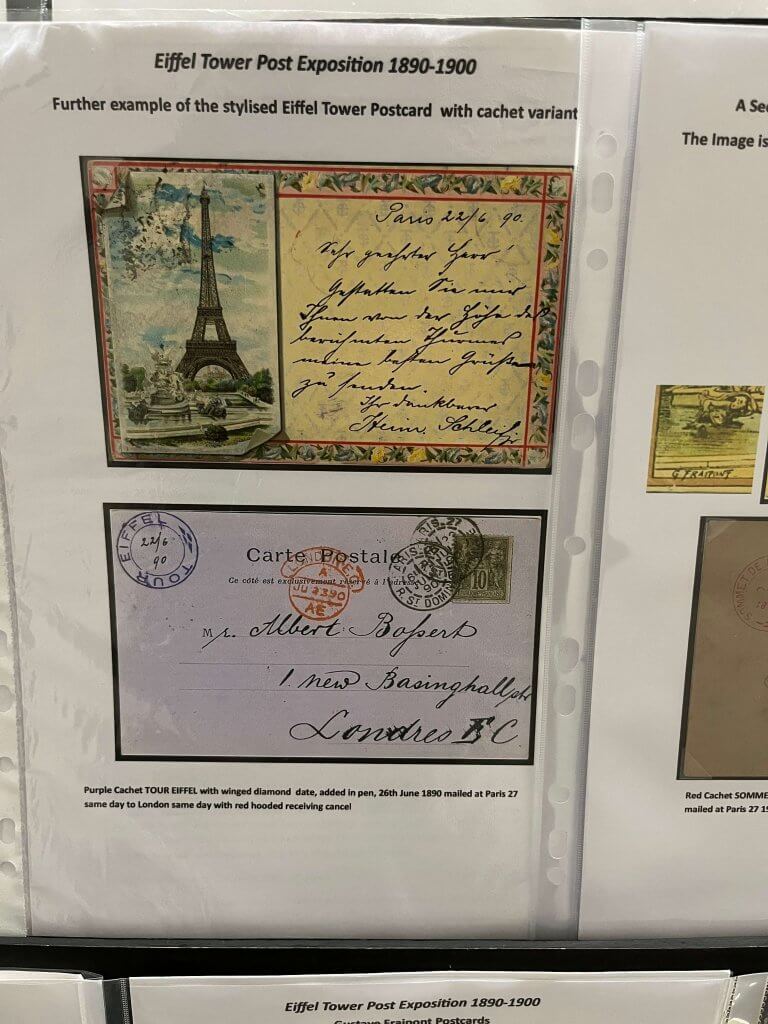 Eiffel Tower Post Exposition 1890-1900
Further example of the stylised Eiffel Tower Postcard with cachet variant
Paris 22/6 90.
Sehr geehrter Herr!
Gestatten Sie mir
Ihnen von der Höhe des
berühmten Thurmes
meine besten Grüße
zu senden.
Ihr dankbarer
Heinr.
TOUR EIFFEL
22/6
90
Carte Postale
Ce côté est exclusivement réservé à l'adresse
LONDRES
A
JU 23 90
AE
PARIS 27
R. ST DOMIN
10
Mr. Albert Bossert
1. new Basinghall str
Londres E C
Purple Cachet TOUR EIFFEL with winged diamond date, added in pen, 26th June 1890 mailed at Paris 27
same day to London same day with red hooded receiving cancel
A Sec
The Image is
G FRAIPONT
SOMMET DE
Red Cachet SOMME
mailed at Paris 27 1
Eiffel Tower Post Exposition 1890-1900
Gustave Fraipont Postcards